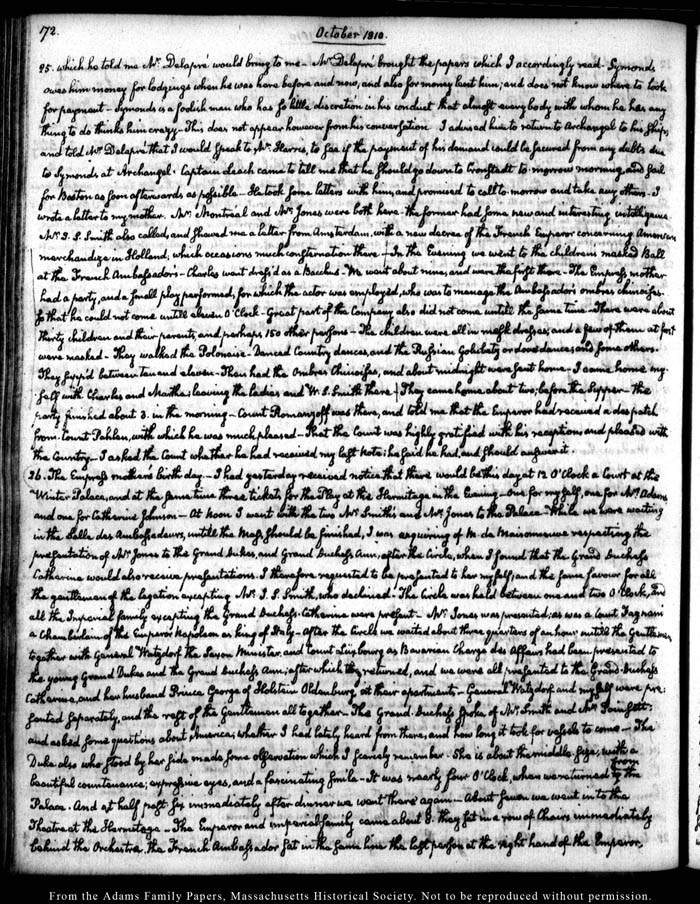 172.
October 1810.
25. which he told me Mr. Delapré would bring to me — Mr. Delapré brought the papers which I accordingly read - Symonds
owes him money for lodgings when he was here before and now, and also for money lent him; and does not know where to look
for payment — Symonds is a foolish man who has so little discretion in his conduct that almost every body with whom he has any
thing to do thinks him crazy - This does not appear however from his conversation I advised him to return to Archangel to his Ship,
and told Mr. Delapré that I would speak to Mr. Harris, to see if the payment of his demand could be secured from any debts due
to Symonds at Archangel. Captain Leach came to tell me that he should go down to Cronstadt to-morrow morning, and sail
for Boston as soon afterwards as possible - He took some letters with him, and promised to call to morrow and take any others - I
wrote a letter to my mother. Mr. Montréal and Mr. Jones were both here - the former had some new and interesting intelligence.
Mr. J. S. Smith also called, and shewed me a letter from Amsterdam, with a new decree of the French Emperor concerning American
merchandize in Holland, which occasions much consternation there - In the Evening we went to the children's masked Ball
at the French Ambassador's - Charles went dress'd as a Bacchus - We went about nine, and were the first there - The Empress mother
had a party, and a small play performed, for which the actor was employed, who was to manage the Ambassador's ombres chinoises.
So that he could not come untill eleven O'Clock - Great part of the Company also did not come untill the same time - There were about
thirty children and their parents, and perhaps 150 other persons - The children were all in mask dresses, and a few of them at first
were masked - They walked the Polonaise - Danced Country dances, and the Russian Golubets or dove dances, and some others.
They supp'd between ten and eleven - Then had the Ombres Chinoises, and about midnight were sent home - I came home my-
self with Charles and Martha; leaving the ladies and W. S. Smith there. They came home about two, before the Supper - The
party finished about 3. in the morning - Count Romanzoff was there, and told me that the Emperor had received a despatch
from Count Pahlen, with which he was much pleased - That the Count was highly gratified with his reception, and pleased with
the Country - I asked the Count whether he had received my last Note; he said he had, and should answer it.
26. The Empress mother's birth day - I had yesterday received notice that there would be this day at 12 O'Clock a Court at the
Winter Palace, and at the same time three tickets for the Play at the Hermitage in the Evening - One for myself, one for Mrs. Adams
and one for Catherine Johnson - At Noon I went with the two Mr. Smiths and Mr. Jones to the Palace - While we were waiting
in the Salle des Ambassadeurs, untill the Mass should be finished, I was enquiring of M. de Maisonneuve respecting the
presentation of Mr. Jones to the Grand Dukes, and Grand Duchess Ann, after the Circle, when I found that the Grand Duchess
Catherine would also receive presentations. I therefore requested to be presented to her myself; and the same favour for all
the gentlemen of the legation excepting Mr. J. S. Smith, who declined. The Circle was held between one and two O'Clock, and
all the Imperial family excepting the Grand Duchess Catherine were present - Mr. Jones was presented; as was a Count Fagnani
a Chamberlain of the Emperor Napoleon as king of Italy - After the Circle we waited about three quarters of an hour untill the Gentlemen
together with General Watzdorf the Saxon Minister, and Count Luxbourg as Bavarian Chargé des Affaires had been presented to
the young Grand Dukes and the Grand Duchess Ann; after which they returned, and we were all presented to the Grand-Duchess
Catherine, and her husband Prince George of Holstein Oldenburg, at their apartments - General Watzdorf and myself were pre-
sented separately, and the rest of the Gentlemen all together - The Grand Duchess spoke of Mr. Smith and Mr. Poinsett.
and asked some questions about America; whether I had lately heard from there, and how long it took for vessels to come - The
Duke also who stood by her side made some observation which I scarcely remember - She is about the middle size, with a
beautiful countenance, expressive eyes, and a fascinating smile - It was nearly four O'Clock, when we returned from the
Palace - And at half past six immediately after dinner we went there again - About seven we went in to the
Theatre at the Hermitage - The Emperor and imperial family came about 8. they sat in a row of Chairs immediately
behind the Orchestra, the French Ambassador sat in the same line the last person at the right hand of the Emperor.
From the Adams Family Papers, Massachusetts Historical Society. Not to be reproduced without permission.